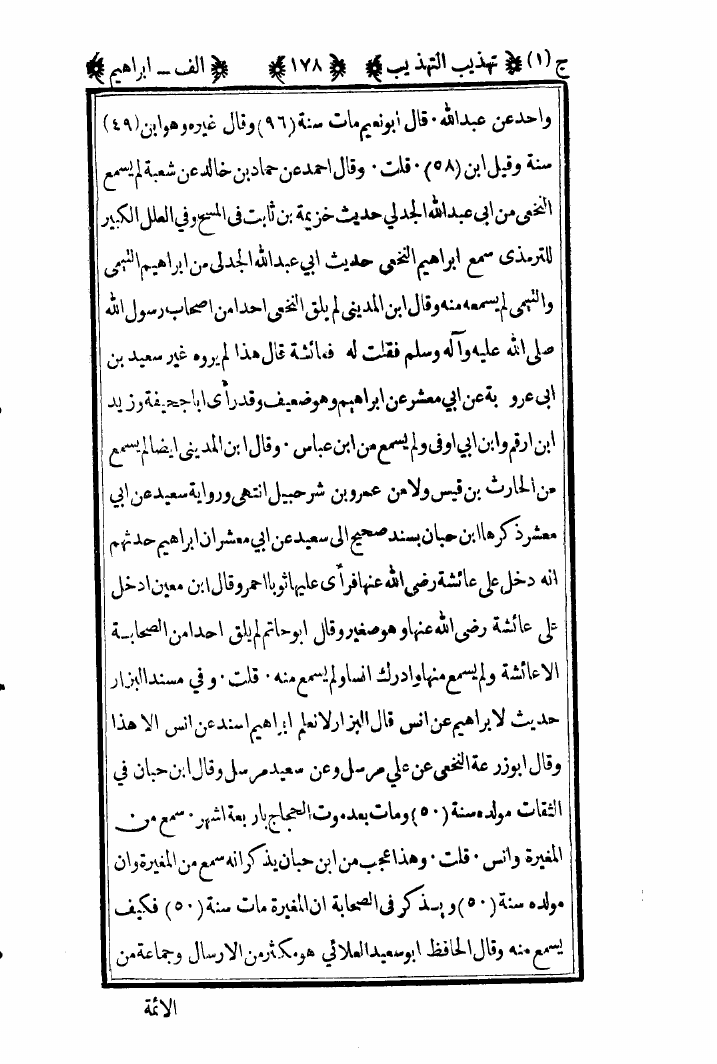 ج (١) ﴿ تهذيب التهذيب ﴾ ﴿ ١٧٨ ﴾ ﴿ الف ــ ابراهيم ﴾
واحد عن عبدالله ٠ قال ابونعيم مات سنة (٩٦) وقال غيره وهو ابن (٤٩)
سنة وقيل ابن (٥٨) ٠ قلت ٠ وقال احمد عن حماد بن خالد عن شعبة لم يسمع
النخعى من ابى عبدالله الجدلي حديث خزيمة بن ثابت فى المسح وفي العلل الكبير
للترمذى سمع ابراهيم النخعى حديث ابي عبدالله الجدلى من ابراهيم التيمى
والتيمى لم يسمعه منه وقال ابن المدينى لم يلق النخعى احدا من اصحاب رسول الله
صلى الله عليه وآله وسلم فقلت له فعائشة قال هذا لم يروه غير سعيد بن
ابى عروبة عن ابي معشر عن ابراهيم وهو ضعيف وقد رأى اباجحيفة وزيد
ابن ارقم وابن ابي اوفى ولم يسمع من ابن عباس ٠ وقال ابن المدينى ايضا لم يسمع
من الحارث بن قيس ولا من عمرو بن شرحبيل انتهى ورواية سعيد عن ابي
معشر ذكرها ابن حبان بسند صحيح الى سعيد عن ابي معشر ان ابراهيم حدثهم
انه دخل على عائشة رضى الله عنها فرأى عليها ثوبا احمر وقال ابن معين ادخل
على عائشة رضى الله عنها وهو صغير وقال ابوحاتم لم يلق احدا من الصحابة
الا عائشة ولم يسمع منها وادرك انسا ولم يسمع منه ٠ قلت ٠ وفي مسند البزار
حديث لابراهيم عن انس قال البزار لانعلم ابراهيم اسند عن انس الا هذا
وقال ابوزرعة النخعى عن علي مرسل وعن سعيد مرسل وقال ابن حبان في
الثقات مولده سنة (٥٠) ومات بعد موت الحجاج باربعة اشهر ٠ سمع من
المغيرة وانس ٠ قلت ٠ وهذا عجب من ابن حبان يذكر انه سمع من المغيرة وان
مولده سنة (٥٠) ويذكر فى الصحابة ان المغيرة مات سنة (٥٠) فكيف
يسمع منه وقال الحافظ ابوسعيد العلائي هو مكثر من الارسال وجماعة من
الائمة